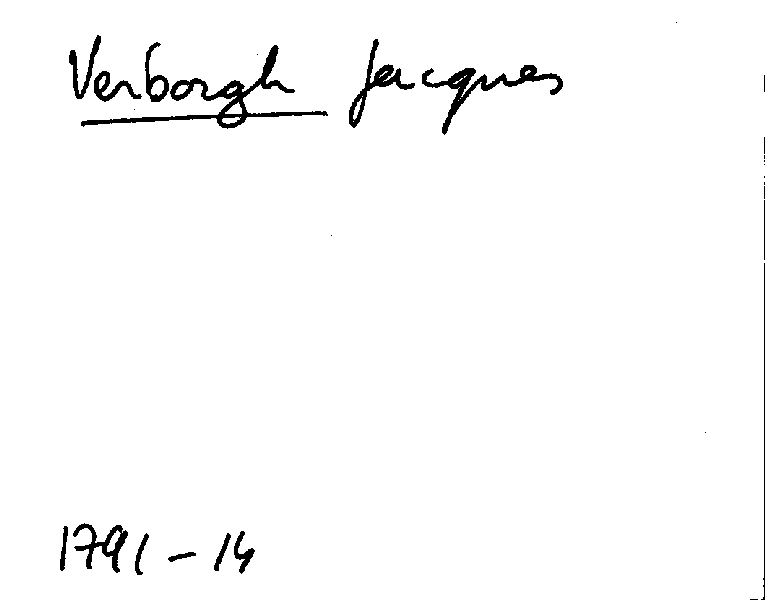 Verborgh Jacques
1791 - 14